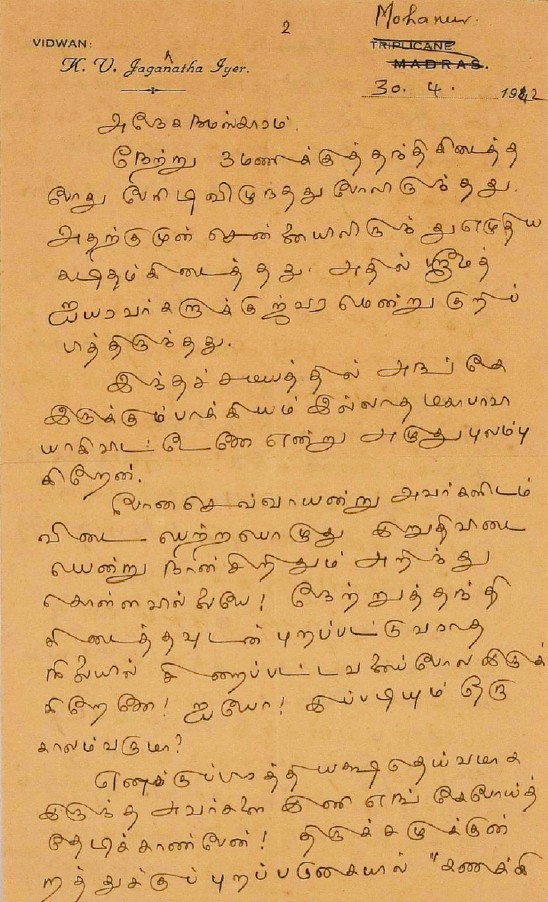 2
Mohanur.
VIDWAN:
TRIPLICANE
K. V. Jagannatha Iyer.
MADRAS.
30. 4. 1942
அநேக நமஸ்காரம்.
நேற்று 3 மணிக்குத் தந்தி கிடைத்த
போது பேரிடி விழுந்தது போலிருந்தது.
அதற்கு முன் சென்னையிலிருந்து எழுதிய
கடிதம் கிடைத்தது. அதில் ஸ்ரீமத்
ஐயரவர்களுக்கு ஜ்வரமென்று குறிப்
பித்திருந்தது.
இந்தச் சமயத்தில் அங்கே
இருக்கும் பாக்கியம் இல்லாத மகாபாவி
யாகிவிட்டேனே என்று அழுது புலம்பு
கிறேன்.
போன செவ்வாயன்று அவர்களிடம்
விடை பெற்றபொழுது இறுதிவிடை
யென்று நான் சிறிதும் அறிந்து
கொள்ளவில்லையே! நேற்றுத் தந்தி
கிடைத்தவுடன் புறப்பட்டு வராத
நிலையில் சிறைப்பட்டவனைப்போல இருக்
கிறேனே! ஐயோ! இப்படியும் ஒரு
காலம் வருமா?
எனக்கு ப்ரத்தியக்ஷ தெய்வமாக
இருந்த அவர்களை இனி எங்கே போய்த்
தேடிக் காண்பேன்! திருக்கழுக்குன்
றத்துக்குப் புறப்படுகையில் "கணக்கி